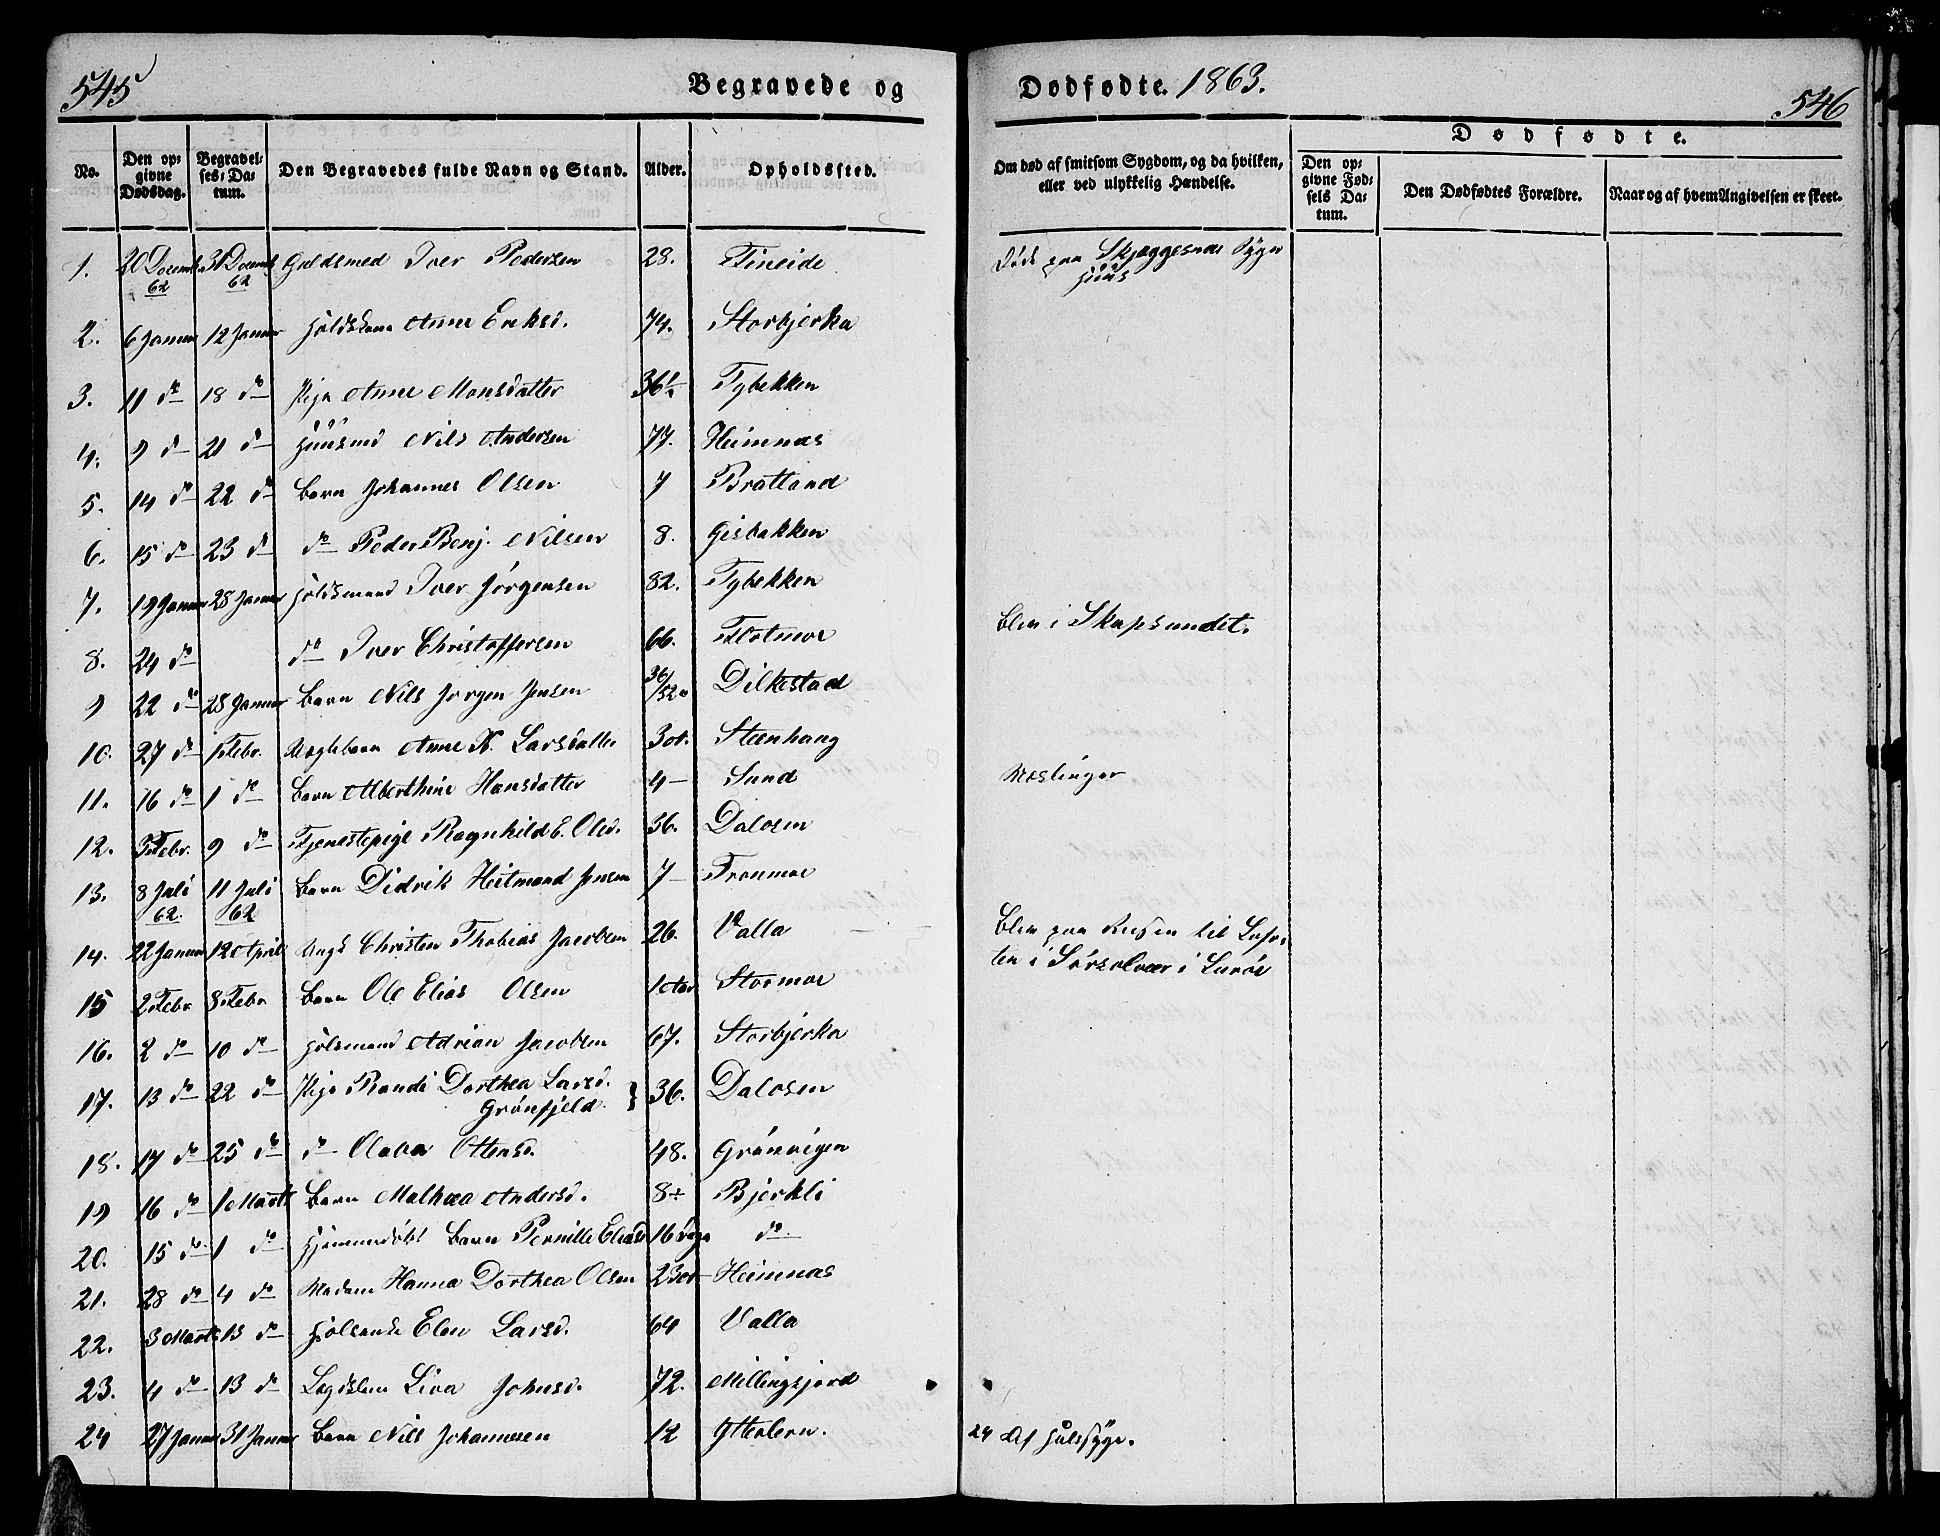 545
Begravede og
Dødfødte. 1863.
546
No.
Den opgivne Dødsdag.
Begravelses-Datum.
Den Begravedes fulde Navn og Stand.
Alder.
Opholdssted.
Om død af smitsom Sygdom, og da hvilken, eller ved ulykkelig Hændelse.
Dødfødte.
Den opgivne Fødsels Datum.
Den Dødfødtes Forældre.
Naar og af hvem Angivelsen er skeet.
1. 20 Decemb. 62 31 Decemb 62 Guldsmed Iver Pedersen 28. Fineide Døde paa Skjæggesnæs Syge
huus
2. 6 Januar 12 Januar Anne Eriksd. 74. Storbjerka
3. 11 do 18 do Pige Anne Monsdatter 36 ½ Tybekken
4. 9 do 21 do Huusmd Nils Andersen 77. Heimnæs
5. 14 do 22 do Barn Johannes Olsen 7 Bratland
6. 15 do 23 do do Peder Benj. Nilsen 8. Gisbakken
7. 19 Januar 28 Januar Iver Jørgensen 82. Tybekken
8. 24 do do Iver Christoffersen 66. Flotmoe Blev i Skapsundet.
9 22 do 28 Januar Barn Nils Jørgen Jensen 36/52 Dilkestad
10. 27 do 1 Febr. Anne K. Larsdatter Steenhaug
11. 16 do 1 do Barn Alberthine Hansdatter 4 — Sund Mæslinger
12. 3 Febr. 9 do Tjenestepige Ragnhild E. Olsd. 36. Dalosen
13. 8 Juli 62. 11 Juli 62 Barn Didrik Heitmand Jensen 7 — Tronmoe
14. 22 Januar 12 April Ungk Christen Thobias Jacobsen 26. Valla Blev paa Reisen til Lofo-
ten i Sørsolvær i Lurøe
15 2 Febr 8 Febr Barn Ole Elias Olsen Stormoe
16. 2 do 10 do Adrian Jacobsen 67. Storbjerka
17. 13 do 22 do Pige Randi Dorthea Larsd. 36. Dalosen
Grønfjeld.
18. 17 do 25 do do Olava Ottensd. 48. Grønvigen
19 16 do 1 Marts Barn Malhæa Andersd. 8 Bjerkli
20. 15 do 1 do Hjemmedøbt Barn Pernille Eliasd 16 Dage do
21. 28 do 4 do Madam Hanna Dorthea Olsen Heimnæs
22. 3 Marts 13 do Elen Larsd. 64 Valla
23. 4 do 13 do Lægdslem Liva Johnsd. 72. Millingsjord
24 27 Januar 31 Januar Barn Nils Johannesen 12 Ytterlern. 24 Af Halssyge.